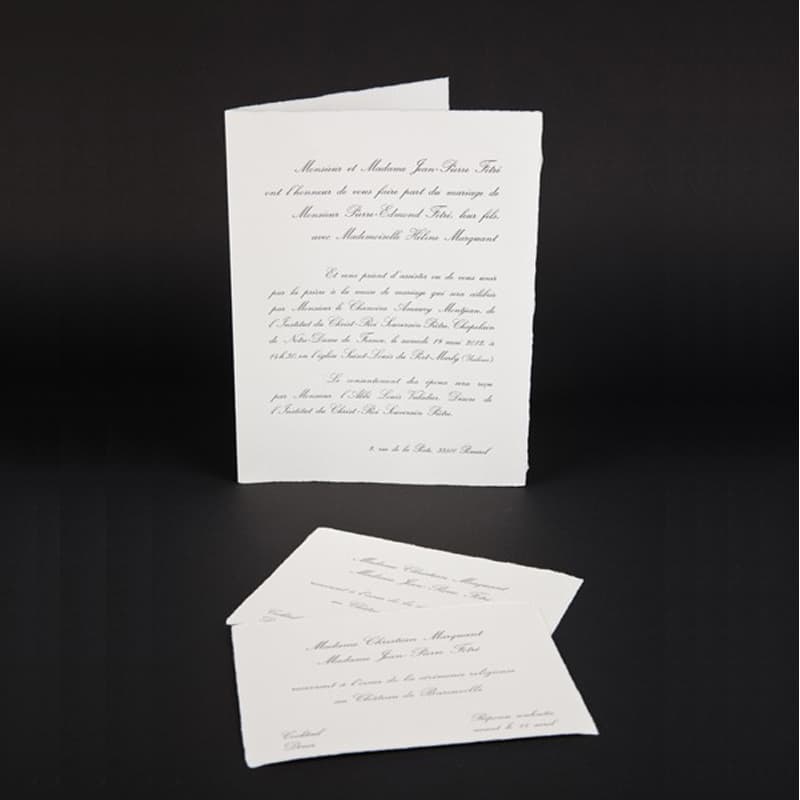 Monsieur et Madame Jean-Pierre Fétré
ont l'honneur de vous faire part du mariage de
Monsieur Pierre-Edmond Fétré, leur fils,
avec Mademoiselle Hélène Marquant
Et vous prient d'assister ou de vous unir
par la prière à la messe de mariage qui sera célébrée
par Monsieur le Chanoine Amaury Montjean, de
l'Institut du Christ-Roi Souverain Prêtre, Chapelain
de Notre-Dame de France, le samedi 19 mai 2012, à
14h30, en l'église Saint-Louis du Port-Marly (Yvelines).
Le consentement des époux sera reçu
par Monsieur l'Abbé Louis Valadier, Diacre de
l'Institut du Christ-Roi Souverain Prêtre.
rue de la
Madame Christian Marquant
Madame Jean-Pierre Fétré
recevront à l'issue de la
au Château
Cocktail
Madame Christian Marquant
Madame Jean-Pierre Fétré
recevront à l'issue de la cérémonie religieuse
au Château de
Cocktail
Dîner
Réponse souhaitée
avant le avril